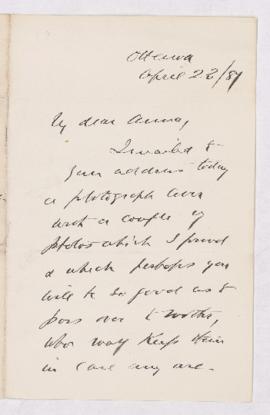 Ottawa
April 22/89
My dear Anna,
I mailed to
your address today
a photograph
with a couple of
photos which I found
& which perhaps you
will be so good as to
pass over to
who may keep them
in case any are.